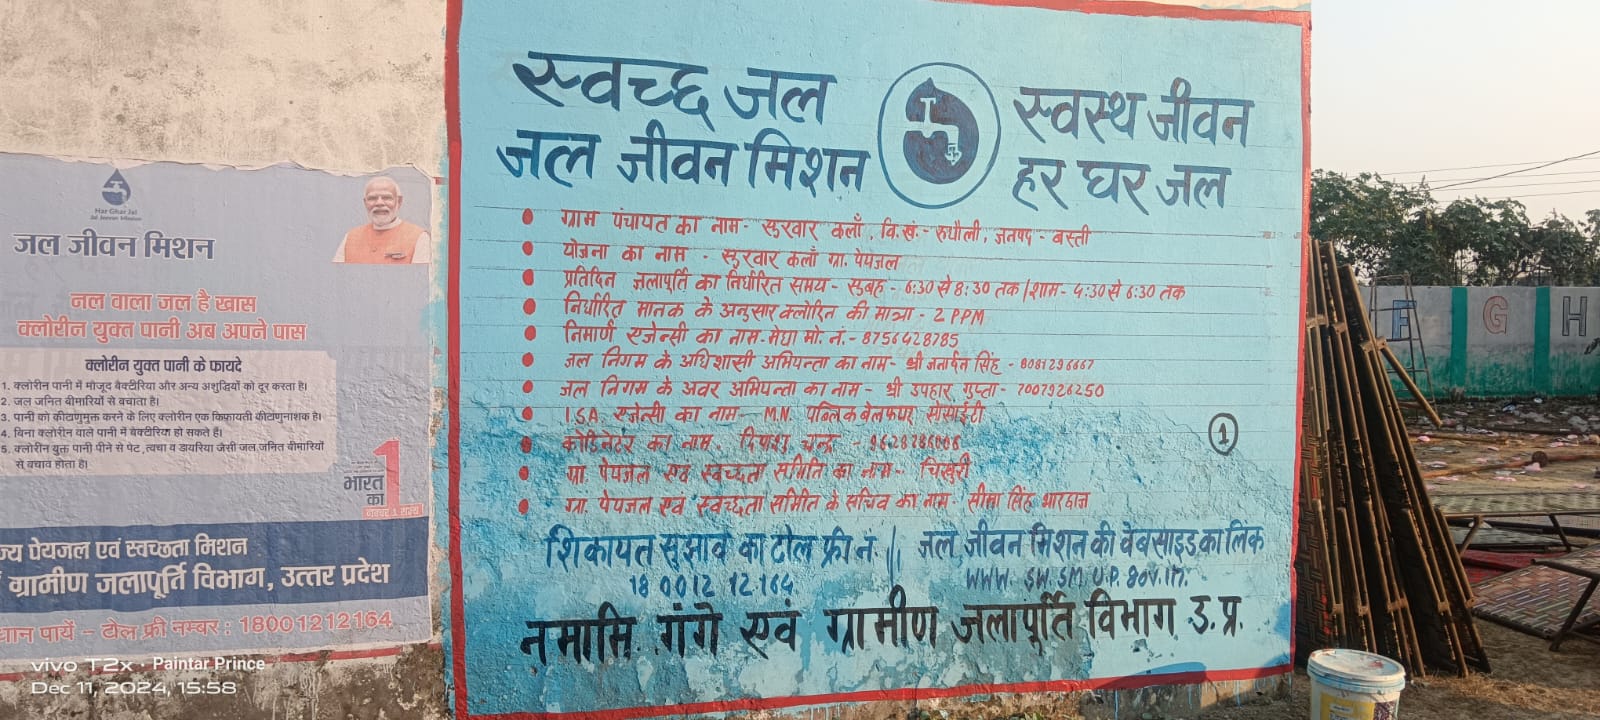 Har Ghar Jal
Jal Jeevan Mission
जल जीवन मिशन
नल वाला जल है खास
क्लोरीन युक्त पानी अब अपने पास
क्लोरीन युक्त पानी के फायदे
1. क्लोरीन पानी में मौजूद बैक्टीरिया और अन्य अशुद्धियों को दूर करता है।
2. जल जनित बीमारियों से बचाता है।
3. पानी को कीटाणुमुक्त करने के लिए क्लोरीन एक किफ़ायती कीटाणुनाशक है।
4. बिना क्लोरीन वाले पानी में बैक्टीरिया हो सकते हैं।
5. क्लोरीन युक्त पानी पीने से पेट, त्वचा व डायरिया जैसी जल जनित बीमारियों
से बचाव होता है।
भारत
का 1
नम्बर 1 राज्य
पेयजल एवं स्वच्छता मिशन
ग्रामीण जलापूर्ति विभाग, उत्तर प्रदेश
पायें - टोल फ्री नम्बर : 18001212164
vivo T2x · Paintar Prince
Dec 11, 2024, 15:58
स्वच्छ जल स्वस्थ जीवन
जल जीवन मिशन हर घर जल
• ग्राम पंचायत का नाम- सुरवार कलाँ, वि.खं.- रुधौली, जनपद - बस्ती
• योजना का नाम - सुरवार कलाँ ग्रा. पेयजल
• प्रतिदिन जलापूर्ति का निर्धारित समय- सुबह - 6:30 से 8:30 तक/शाम- 4:30 से 6:30 तक
• निर्धारित मानक के अनुसार क्लोरिन की मात्रा - 2 PPM
• निमार्ण एजेन्सी का नाम-मेघा मो. नं.- 8756428785
• जल निगम के अधिशासी अभियन्ता का नाम- श्री जनार्दन सिंह - 8081296667
• जल निगम के अवर अभियन्ता का नाम- श्री उपहार गुप्ता- 7007926250
• I.S.A. एजेन्सी का नाम- M.N. पब्लिक वेलफेयर सोसाईटी
• कोर्डिनेटर का नाम. चन्द्र -
• ग्रा. पेयजल एवं स्वच्छता समिति का नाम- चिखुरी
• ग्रा. पेयजल एवं स्वच्छता समिति के सचिव का नाम- सीमा सिंह भारद्वाज
1
शिकायत सुझाव का टोल फ्री नं // जल जीवन मिशन की वेबसाइड का लिंक
18 0012 12 164 WWW. SW. SM. U.P. Gov.in.
नमामि गंगे एवं ग्रामीण जलापूर्ति विभाग उ. प्र.
F G H